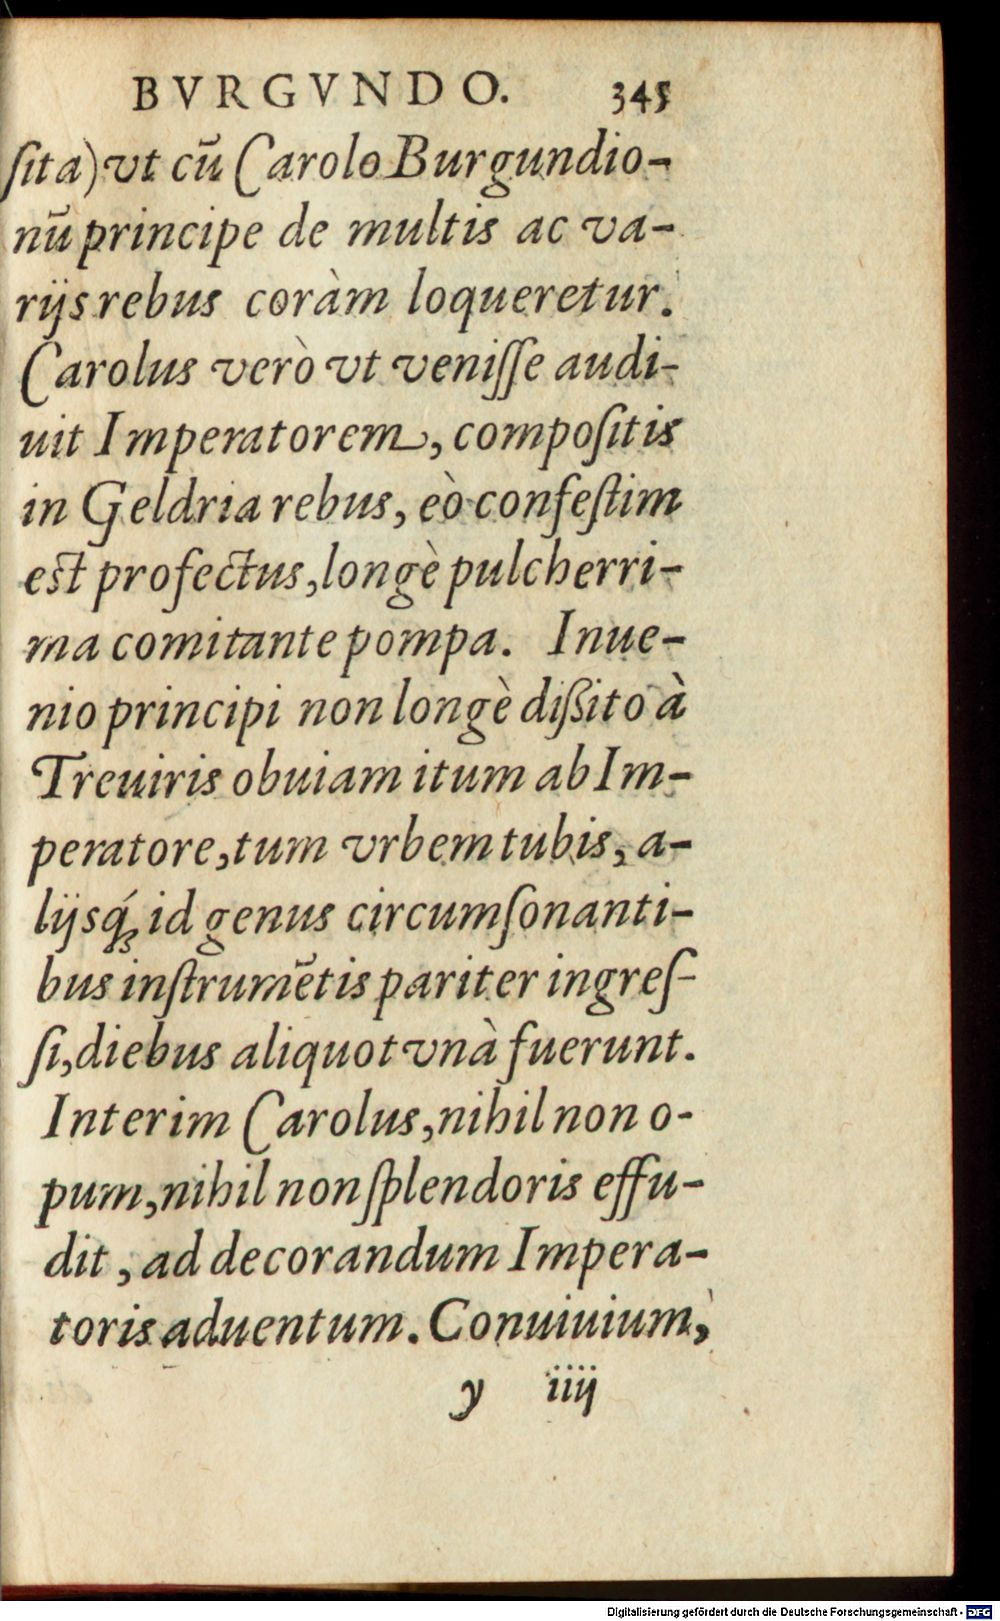 BVRGVNDO. 345
ſita) vt cū Carolo Burgundio-
nū principe de multis ac va-
rijs rebus coràm loqueretur.
Carolus verò vt veniſſe audi-
uit Imperatorem, compoſitis
in Geldria rebus, eò confeſtim
est profectus, longè pulcherri-
ma comitante pompa. Inue-
nio principi non longè dißito à
Treuiris obuiam itum ab Im-
peratore, tum vrbem tubis, a-
lijsq́ꝫ id genus circumſonanti-
bus inſtrumētis pariter ingreſ-
ſi, diebus aliquot vnà fuerunt.
Interim Carolus, nihil non o-
pum, nihil non ſplendoris effu-
dit, ad decorandum Impera-
toris aduentum. Conuiuium,
y iiij
Digitalisierung gefördert durch die Deutsche Forschungsgemeinschaft - DFG